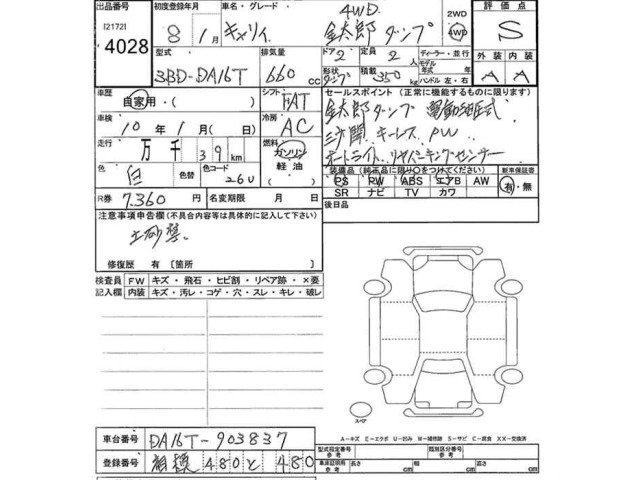 出品番号 初度登録年月 車名・グレード 4WD. 2WD 評価点
[21721] 4028 8年 1月 キャリイ 金太郎ダンプ 4WD S
型式 排気量 ドア 2 定員 2人 ディーラー・並行 外装 内装
3BD-DA16T 660cc 形状 ダンプ 積載 350kg モデル年式 年 ハンドル 左・右 A A
車歴 自家用・( ) シフト FAT セールスポイント (正常に機能するものに限ります)
車検 10年 1月( )日 冷房 AC 金太郎ダンプ 電動油圧式
走行 万 千 39km 燃料 ガソリン 軽油 三方開 キーレス PW
色 白 色替 色コード 26U オートライト リヤパーキングセンサー
装備品 (純正品に限り○をつけてください) 新車保証書
PS PW ABS エアB AW 有・無
SR ナビ TV カワ
R券 7,360円 名変期限 月 日 後日品
注意事項申告欄 (不具合内容等は具体的に記入して下さい)
土砂禁
修復歴 有 [箇所 ]
検査員記入欄 FW キズ・飛石・ヒビ割・リペア跡・×要
内装 キズ・汚レ・コゲ・穴・スレ・キレ・破レ
スペア
A-キズ E-エクボ U-凹み W-補修跡 S-サビ C-腐食 XX-交換済
車台番号 DA16T-903837 型式指定番号 類別区分番号
参考 参考
登録番号 相模 480 と 480 車庫証明用参考 長さ cm 幅 cm 高さ cm